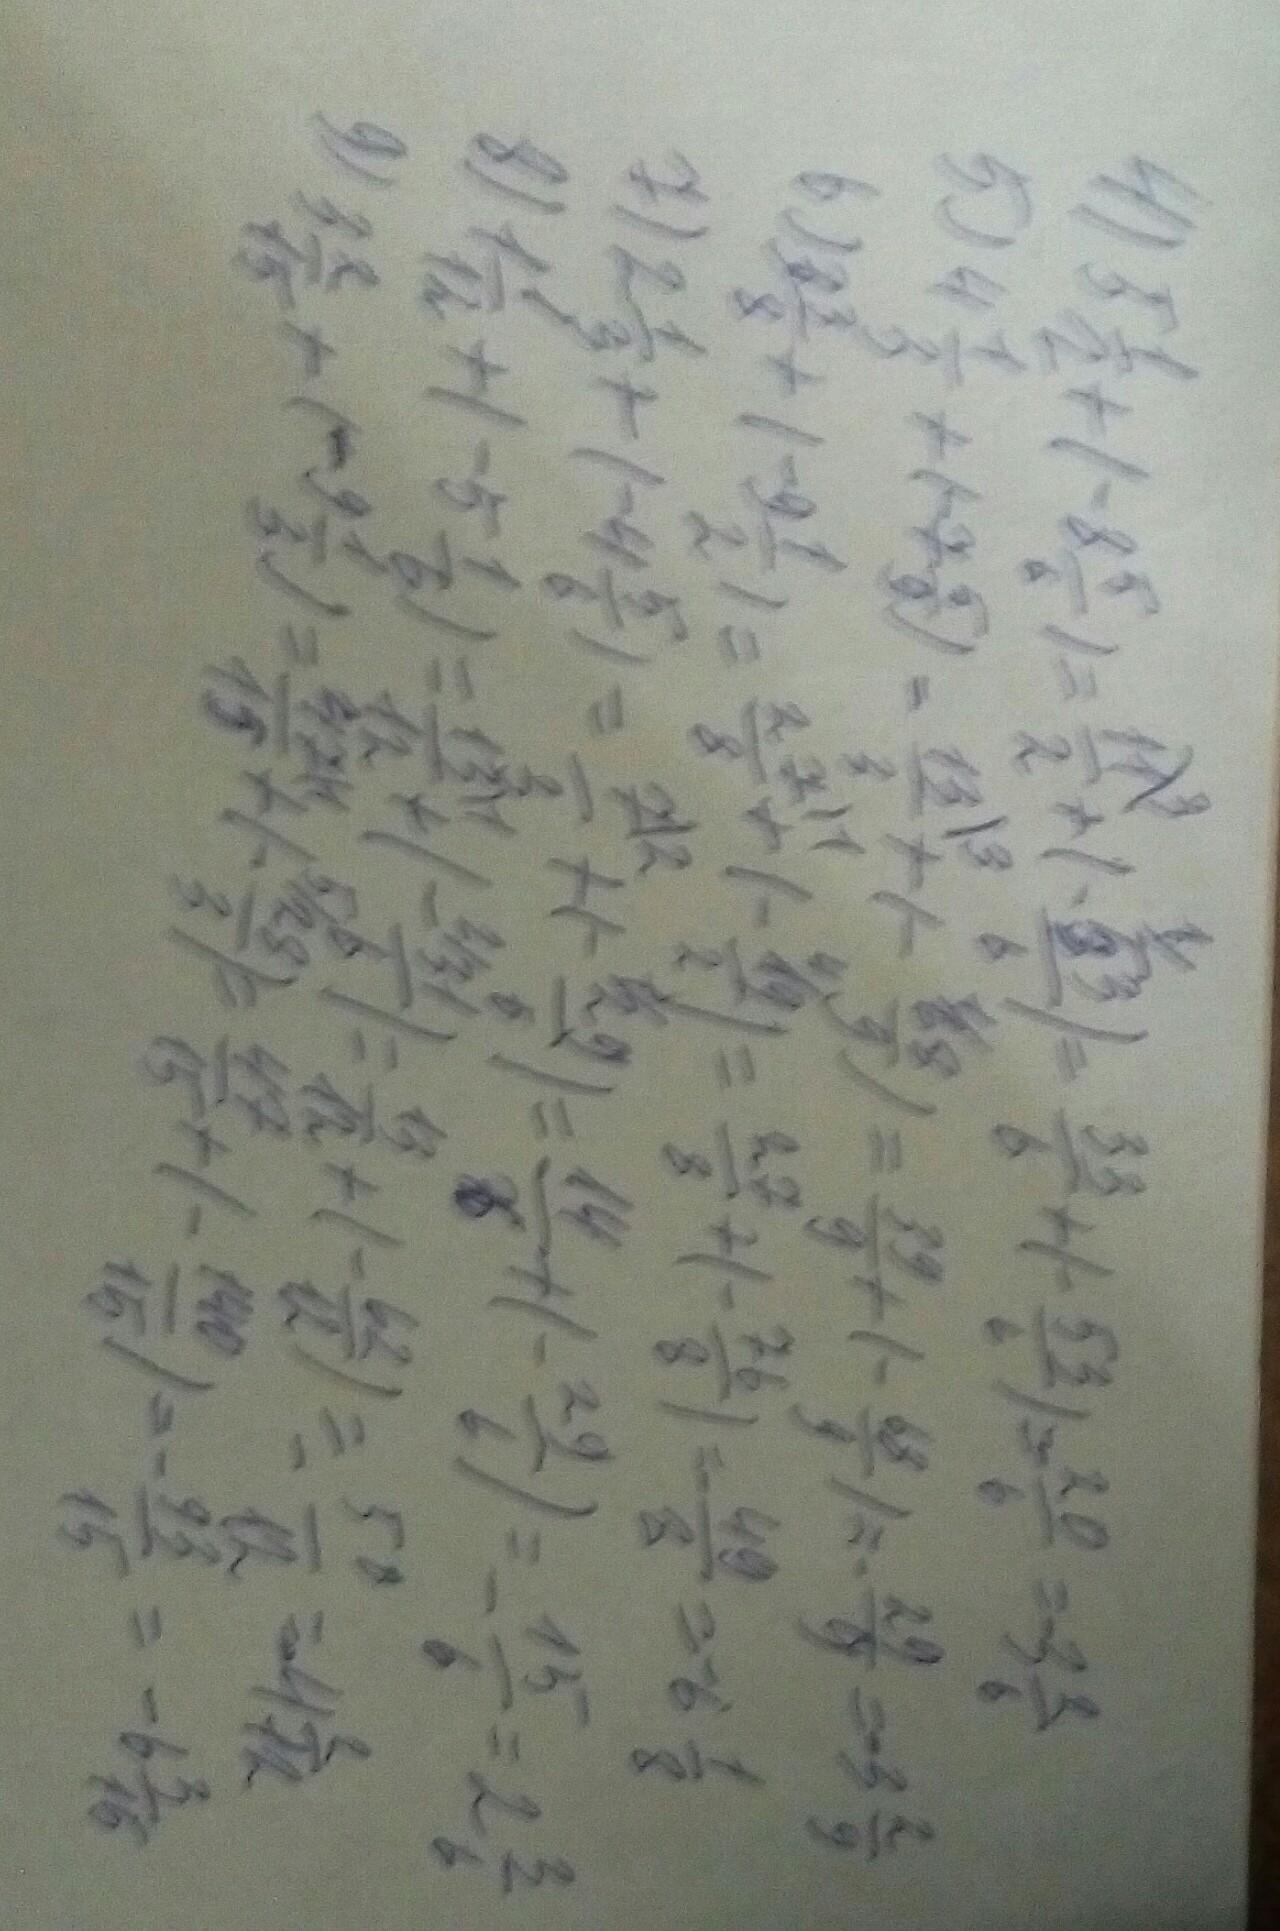 4) 5 1/2 + (-8 5/6) = 11/2 + (- 53/6) = 33/6 + (- 53/6) = - 20/6 = -3 2/6
5) 4 1/3 + (-7 5/9) = 13/3 + (- 68/9) = 39/9 + (- 68/9) = - 29/9 = -3 2/9
6) 3 3/8 + (-9 1/2) = 27/8 + (- 19/2) = 27/8 + (- 76/8) = - 49/8 = -6 1/8
7) 2 1/3 + (-4 5/6) = 7/3 + (- 29/6) = 14/6 + (- 29/6) = - 15/6 = 2 3/6
8) 1 1/12 + (-5 1/6) = 13/12 + (- 31/6) = 13/12 + (- 62/12) = - /12 = -4 /12
9) 3 2/15 + (-9 1/3) = 47/15 + (- /3) = 47/15 + (- 140/15) = - 93/15 = -6 3/15